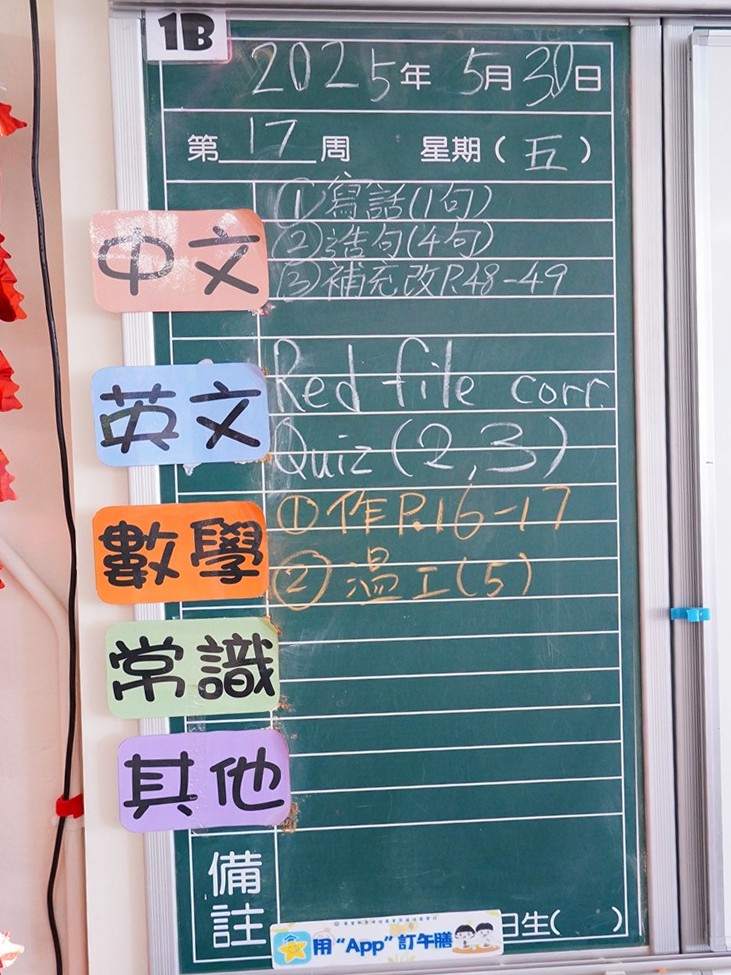 1B
2025年 5月30日
第17周 星期(五)
中文
①寫話(1句)
②造句(4句)
③補充改P.48-49
英文
Red file corr.
Quiz (2,3)
數學
①作P.16-17
②溫工(5)
常識
其他
備註
日生( )
用“App”訂午膳